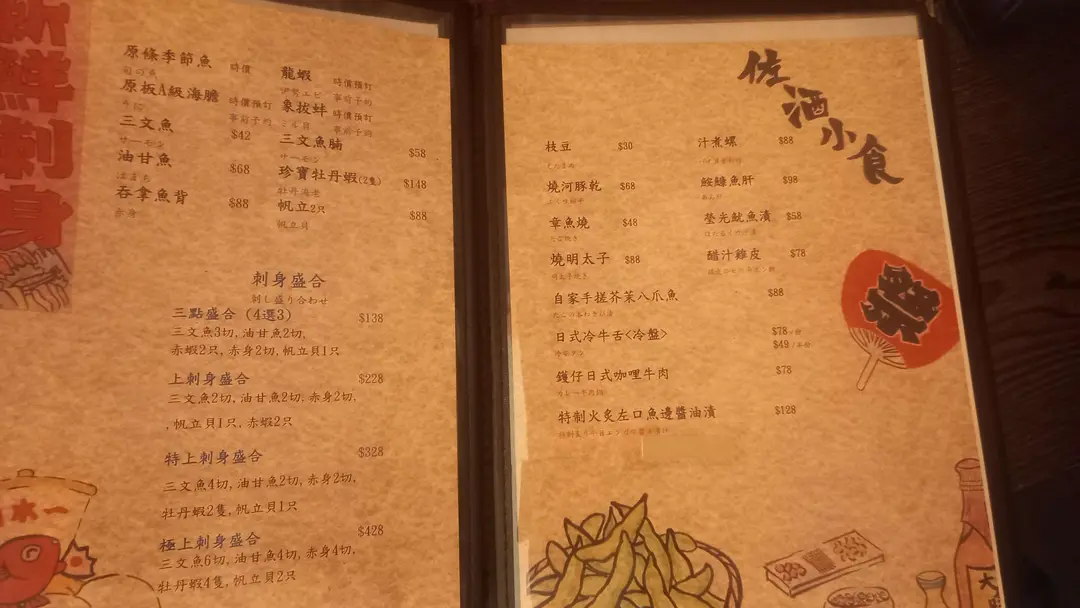 新鮮刺身
原條季節魚 時價
旬の魚
原板A級海膽 時價預訂
事前予約
三文魚 $42
サーモン
油甘魚 $68
はまち
吞拿魚背 $88
赤身
龍蝦 時價預訂
伊勢エビ 事前予約
象拔蚌 時價預訂
事前予約
三文魚腩 $58
サーモン
珍寶牡丹蝦(2隻) $148
牡丹海老
帆立2只 $88
帆立貝
刺身盛合
刺し盛り合わせ
三點盛合 (4選3) $138
三文魚3切, 油甘魚2切,
赤蝦2只, 赤身2切, 帆立貝1只
上刺身盛合 $228
三文魚2切, 油甘魚2切, 赤身2切,
, 帆立貝1只, 赤蝦2只
特上刺身盛合 $328
三文魚4切, 油甘魚2切, 赤身2切,
牡丹蝦2隻, 帆立貝1只
極上刺身盛合 $428
三文魚6切, 油甘魚4切, 赤身4切,
牡丹蝦4隻, 帆立貝2只
佐酒小食
枝豆 $30
えだまめ
燒河豚乾 $68
章魚燒 $48
たこ焼き
燒明太子 $88
明太子焼き
汁煮螺 $88
鮟鱇魚肝 $98
あん肝
螢光魷魚漬 $58
醋汁雞皮 $78
自家手搓芥茉八爪魚 $88
日式冷牛舌<冷盤> $78
$49
冷製タン
鑊仔日式咖哩牛肉 $78
特制火炙左口魚邊醬油漬 $128
祭
一水
大